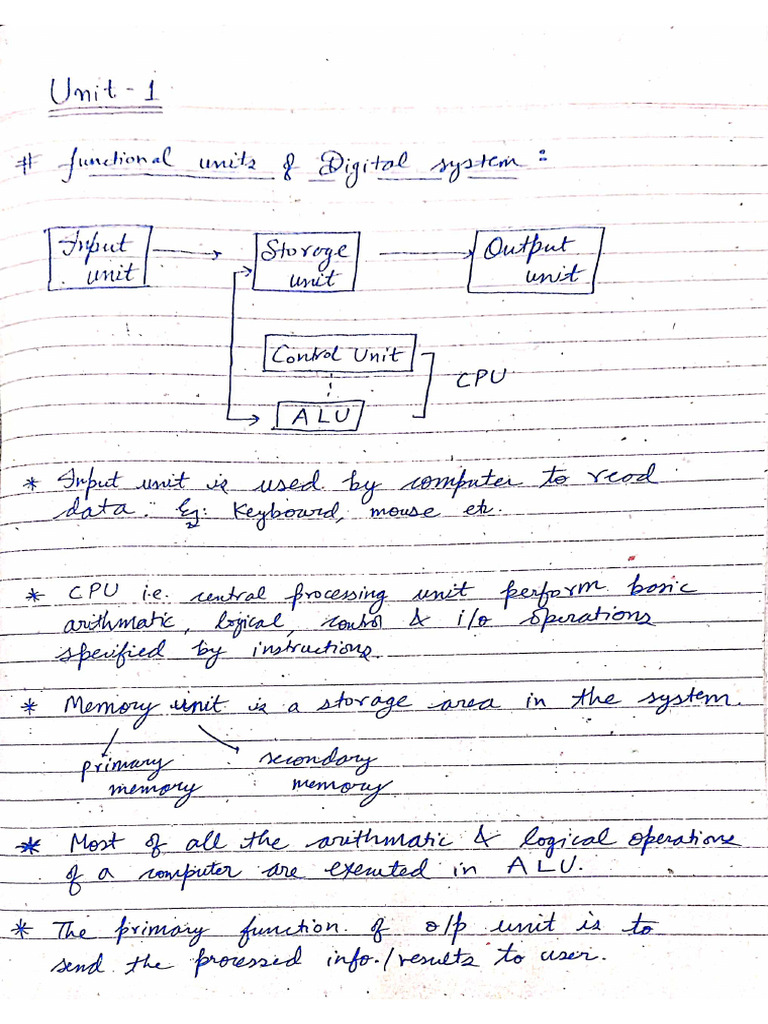 Unit - 1
# functional units of Digital system :
Input unit
Storage unit
Output unit
Control Unit
CPU
ALU
* Input unit is used by computer to read
data. Eg: Keyboard, mouse etc.
* CPU i.e. central processing unit perform basic
arithmatic, logical, control & i/o operations
specified by instructions.
* Memory unit is a storage area in the system.
primary memory
secondary memory
* Most of all the arithmatic & logical operations
of a computer are executed in ALU.
* The primary function of o/p unit is to
send the processed info./results to user.